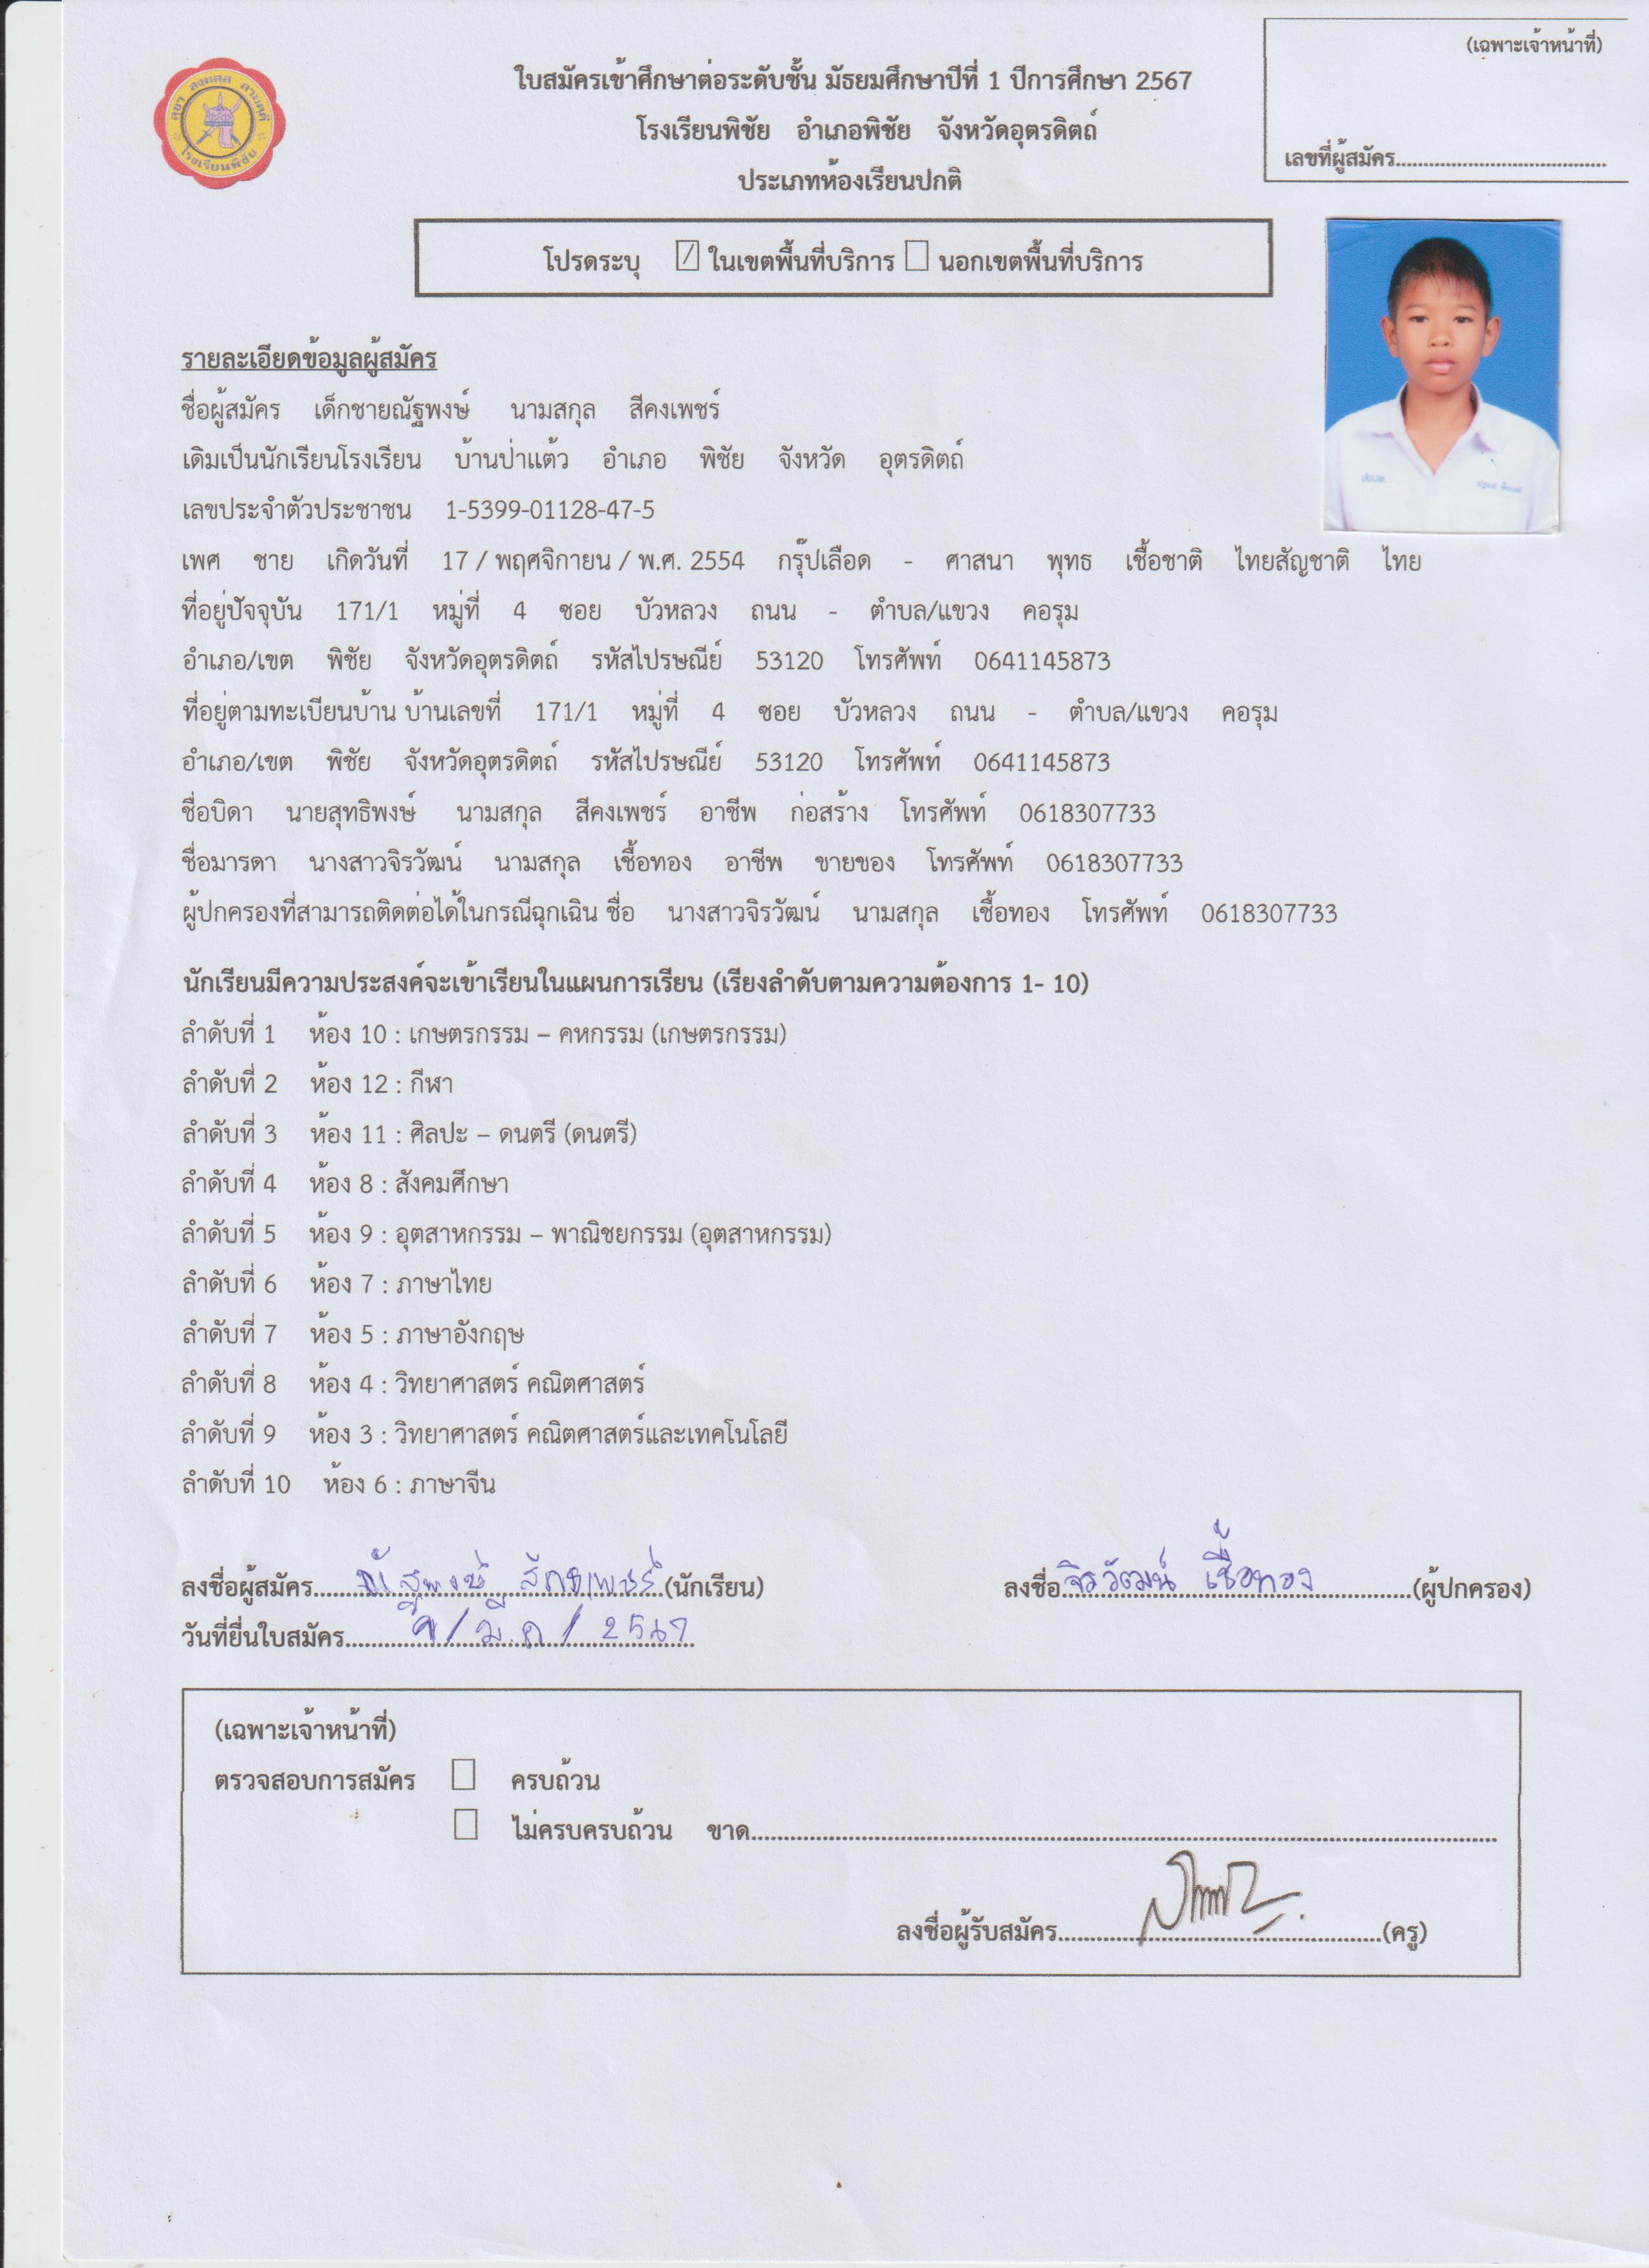 (เฉพาะเจ้าหน้าที่)
ใบสมัครเข้าศึกษาต่อระดับชั้น มัธยมศึกษาปีที่ 1 ปีการศึกษา 2567
โรงเรียนพิชัย อำเภอพิชัย จังหวัดอุตรดิตถ์
เลขที่ผู้สมัคร
ประเภทห้องเรียนปกติ
โรงเรียนพิชัย
โปรดระบุ ในเขตพื้นที่บริการ นอกเขตพื้นที่บริการ
รายละเอียดข้อมูลผู้สมัคร
ชื่อผู้สมัคร เด็กชายณัฐพงษ์ นามสกุล สีคงเพชร์
เดิมเป็นนักเรียนโรงเรียน บ้านป่าแต้ว อำเภอ พิชัย จังหวัด อุตรดิตถ์
เลขประจำตัวประชาชน 1-5399-01128-47-5
เพศ ชาย เกิดวันที่ 17 / พฤศจิกายน / พ.ศ. 2554 กรุ๊ปเลือด - ศาสนา พุทธ เชื้อชาติ ไทยสัญชาติ ไทย
ที่อยู่ปัจจุบัน 171/1 หมู่ที่ 4 ซอย บัวหลวง ถนน - ตำบล/แขวง คอรุม
อำเภอ/เขต พิชัย จังหวัดอุตรดิตถ์ รหัสไปรษณีย์ 53120 โทรศัพท์ 0641145873
ที่อยู่ตามทะเบียนบ้าน บ้านเลขที่ 171/1 หมู่ที่ 4 ซอย บัวหลวง ถนน - ตำบล/แขวง คอรุม
อำเภอ/เขต พิชัย จังหวัดอุตรดิตถ์ รหัสไปรษณีย์ 53120 โทรศัพท์ 0641145873
ชื่อบิดา นายสุทธิพงษ์ นามสกุล สีคงเพชร์ อาชีพ ก่อสร้าง โทรศัพท์ 0618307733
ชื่อมารดา นางสาวจิรวัฒน์ นามสกุล เชื้อทอง อาชีพ ขายของ โทรศัพท์ 0618307733
ผู้ปกครองที่สามารถติดต่อได้ในกรณีฉุกเฉิน ชื่อ นางสาวจิรวัฒน์ นามสกุล เชื้อทอง โทรศัพท์ 0618307733
นักเรียนมีความประสงค์จะเข้าเรียนในแผนการเรียน (เรียงลำดับตามความต้องการ 1- 10)
ลำดับที่ 1 ห้อง 10 : เกษตรกรรม – คหกรรม (เกษตรกรรม)
ลำดับที่ 2 ห้อง 12 : กีฬา
ลำดับที่ 3 ห้อง 11 : ศิลปะ – ดนตรี (ดนตรี)
ลำดับที่ 4 ห้อง 8 : สังคมศึกษา
ลำดับที่ 5 ห้อง 9 : อุตสาหกรรม – พาณิชยกรรม (อุตสาหกรรม)
ลำดับที่ 6 ห้อง 7 : ภาษาไทย
ลำดับที่ 7 ห้อง 5 : ภาษาอังกฤษ
ลำดับที่ 8 ห้อง 4 : วิทยาศาสตร์ คณิตศาสตร์
ลำดับที่ 9 ห้อง 3 : วิทยาศาสตร์ คณิตศาสตร์และเทคโนโลยี
ลำดับที่ 10 ห้อง 6 : ภาษาจีน
ลงชื่อผู้สมัคร (นักเรียน) ลงชื่อ จิรวัฒน์ เชื้อทอง (ผู้ปกครอง)
วันที่ยื่นใบสมัคร / มี.ค / 2567
(เฉพาะเจ้าหน้าที่)
ตรวจสอบการสมัคร ครบถ้วน
ไม่ครบครบถ้วน ขาด
ลงชื่อผู้รับสมัคร (ครู)